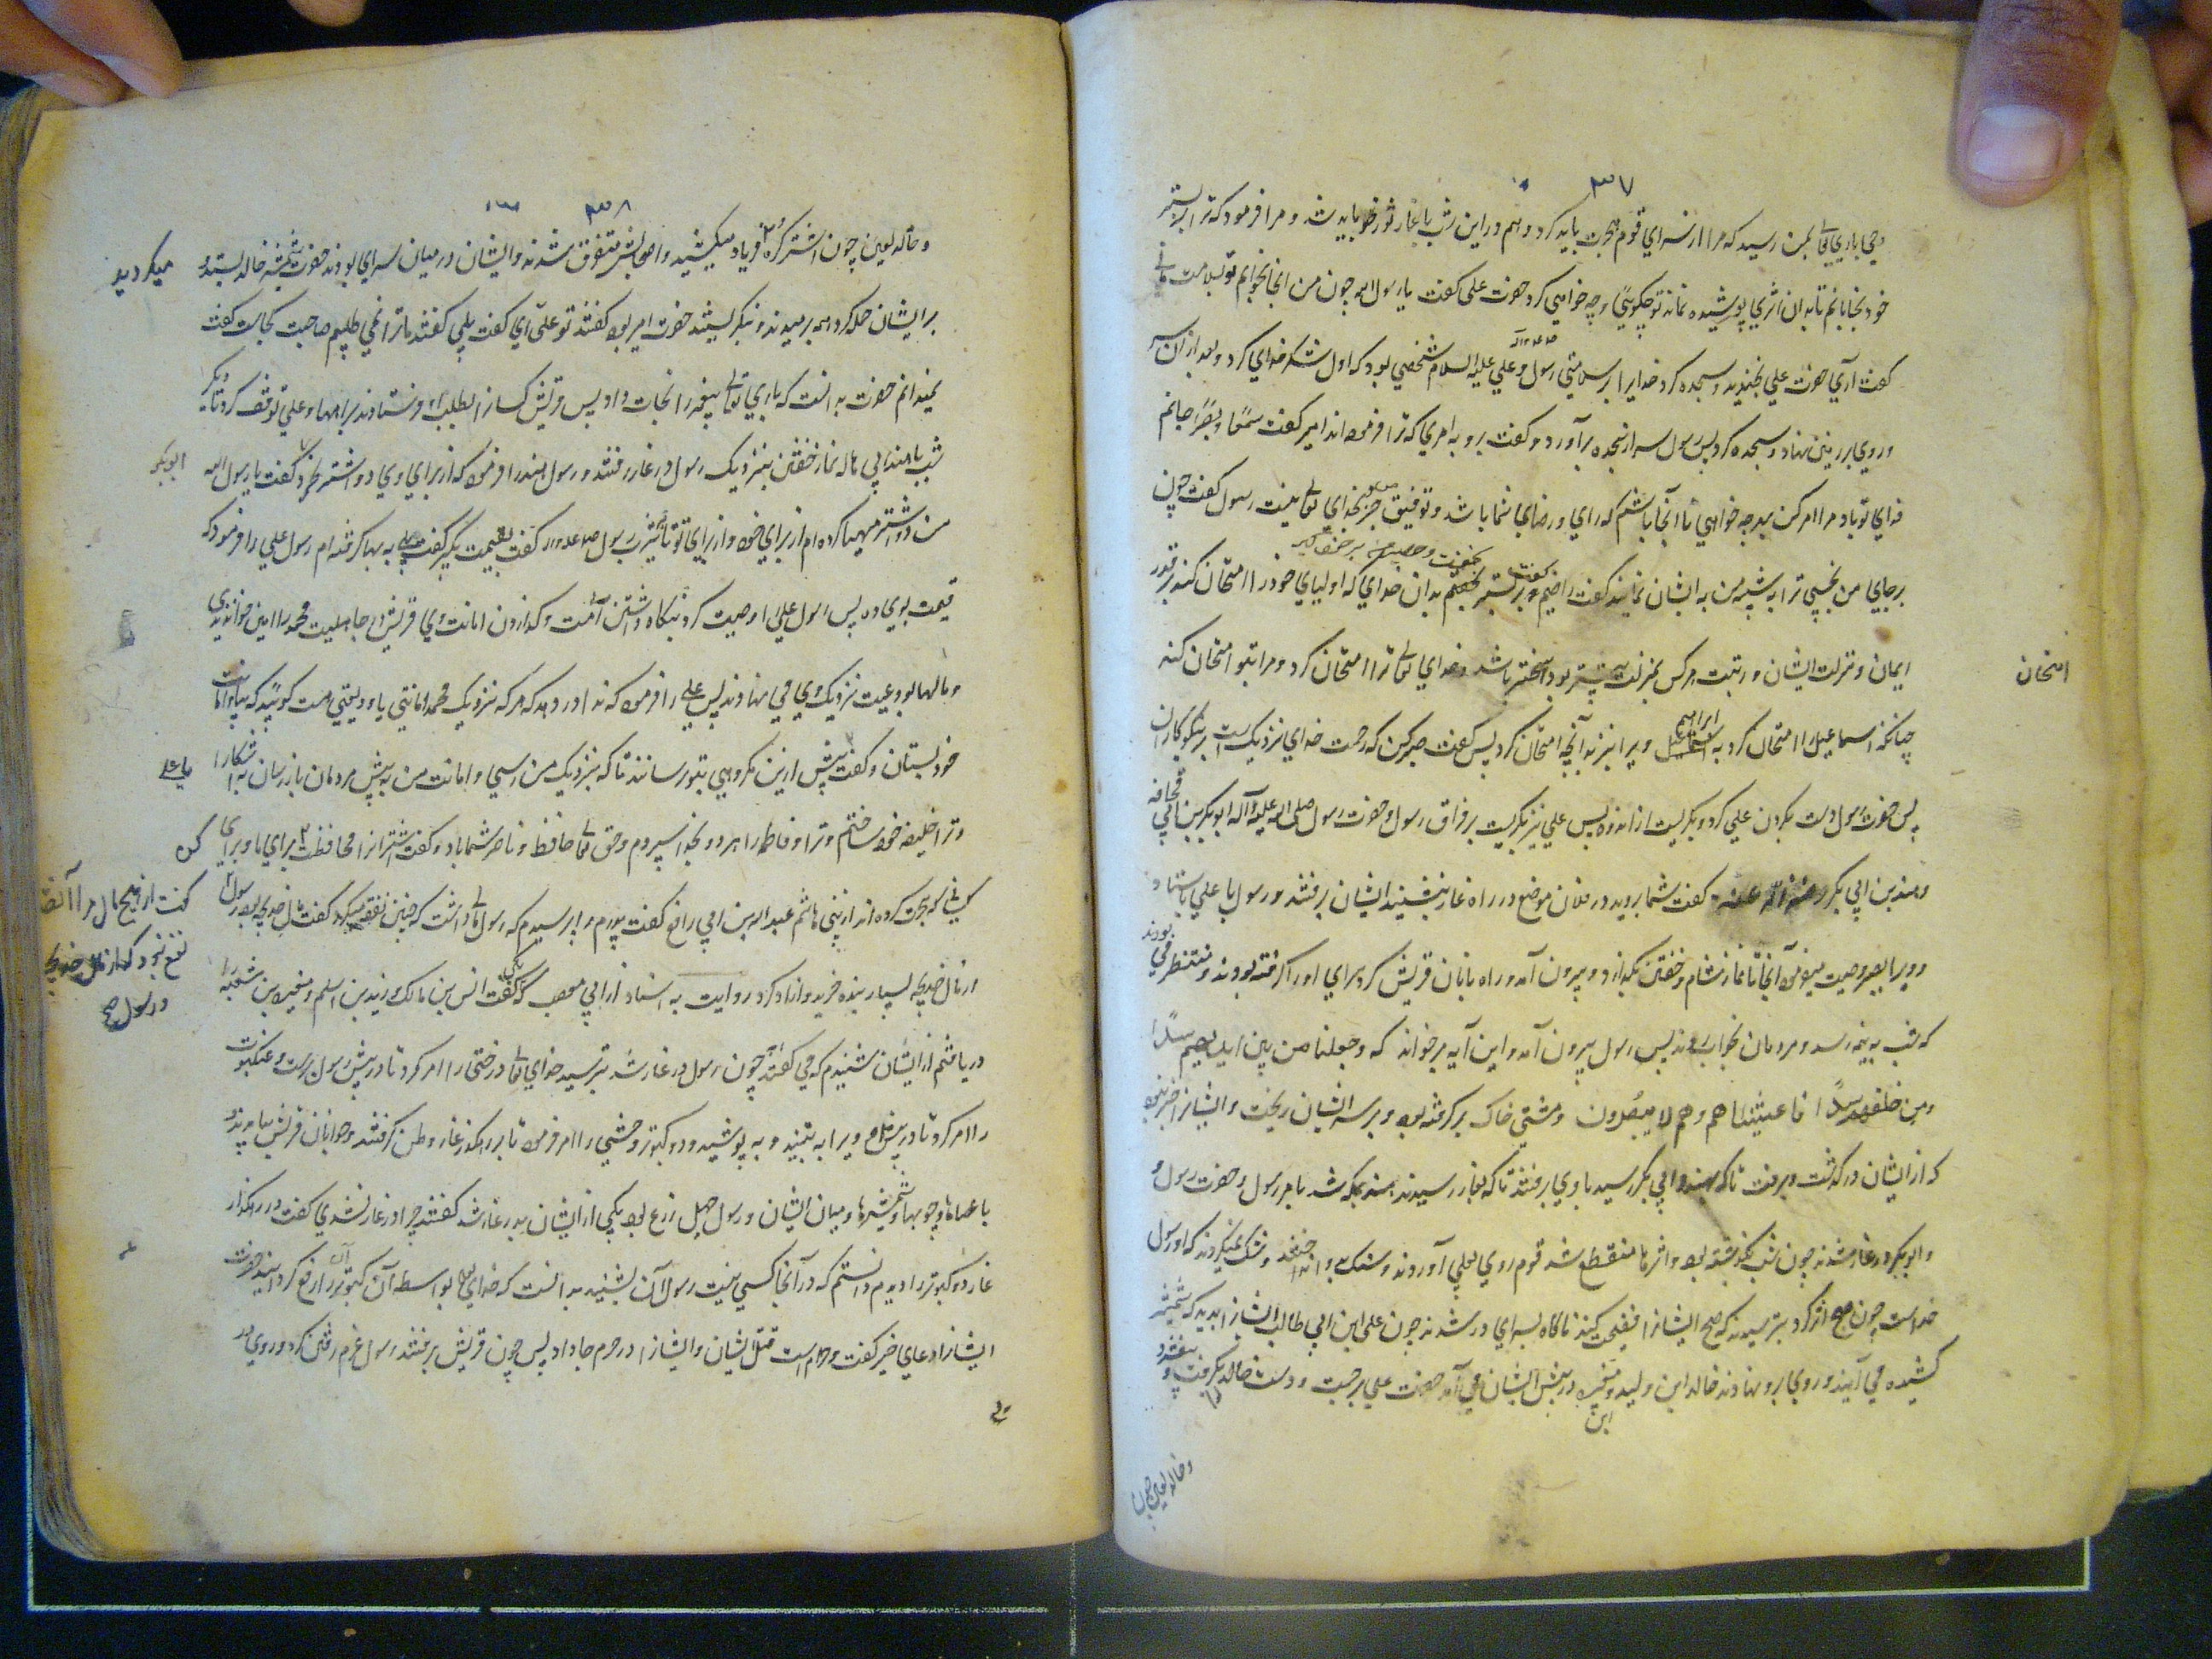 ۳۷
وحی باری تعالی بمن رسید که مرا از سرای قوم هجرت باید کرد و هم در این شب با غار ثور باید شد و مرا فرمود که ترا بر بستر
خود بخوابانم تا بدان اثری پوشیده نماند تو چگویی و چه خواهی کرد حضرت علی گفت یا رسول الله چون من آنجا بخوابم تو بسلامت مانی
گفت آری حضرت علی بخندید و سجده کرد خدایرا بر سلامتی رسول و علی علیه السلام شخصی بود که اول شکر خدای کرد و بعد از آن سر
و روی بر زمین نهاد و سجده کرد پس رسول سر از سجده برآورد و گفت برو به امری که ترا فرموده‌اند امیر گفت سمعا و بصرا جانم
فدای تو باد مرا امر کن بهر چه خواهی تا آنجا باشم که رای و رضای شما باشد و توفیق من جز بخدای تعالی نیست رسول گفت چون
بر جای من بخسپی ترا به شبه من به ایشان نمایند گفت راضیم گفت بر بستر بخفت بدان خدای که اولیای خود را امتحان کند بر قدر
ایمان و منزلت ایشان و رتبت هر کس بمنزلت بیشتر بود سختر باشد و خدای تعالی ترا امتحان کرد و مرا بتو امتحان کند
امتحان
چنانکه اسماعیل را امتحان کرد به ابراهیم و یرا نیز به آنچه امتحان کرد پس گفت صبر کن که رحمت خدای نزدیک است بر نیکوکاران
پس حضرت رسول دست بگردن علی کرد و بگریست از اندوه پس علی نیز بگریست بر فراق رسول و حضرت رسول صلی الله علیه و آله ابوبکر بن ابی قحافه
و هند بن ابی بکر رضی الله عنه گفت شما بروید در فلان موضع در راه غار بنشینید ایشان برفتند و رسول با علی بایستاد
و ویرا بصبر وصیت میفرمود آنجا تا نماز شام و خفتن بگذارد و بیرون آمد و راه بانان قریش گرد سرای او را گرفته بودند و منتظر می بودند
که شب به نیمه رسد و مردمان بخواب روند پس رسول بیرون آمد و این آیه برخواند که وجعلنا من بین ایدیهم سدا
و من خلفهم سدا فاغشیناهم وهم لا یبصرون و مشتی خاک برگرفته بود و بر سر ایشان ریخت و ایشانرا خبر نبود
که از ایشان درگذشت و برفت تا که بهند و ابی بکر رسید با وی برفتند تا که بغار رسیدند هند بمکه شد بامر رسول و حضرت رسول
و ابوبکر در غار شدند چون شب بگذشته بود و اثرها منقطع شد قوم روی بعلی آوردند و سنگ بوی انداختند و شک نمیکردند که او رسول
خداست چون صبح اثر کرد بترسیدند که صبح ایشانرا فضیحت کند ناگاه بسرای در شدند چون علی ابن ابی طالب ایشانرا بدید که شمشیر
کشیده می‌آیند و روی بدو نهادند خالد ابن ولید ابن مغیره در پیش ایشان می‌آمد حضرت علی برجست و دست خالد بگرفت و بفشرد
و خالد لعین چون
۳۸
و خالد لعین چون اشتر کره فریاد میکشید و اصحابش متفرق شدند و ایشان در میان سرای بودند حضرت شمشیر خالد بستد و
میگردید
بر ایشان حمله کرد همه برمیدند و نگریستند حضرت امیر بود گفتند تو علی‌ای گفت بلی گفتند ما ترا نمی‌طلبیم صاحبت کجاست گفت
نمیدانم حضرت بدانست که باری تعالی پیغمبر را نجات داد پس قریش کسانرا بطلب او فرستادند براهها و علی توقف کرد تا دیگر
شب با هند ابی هاله نماز خفتن بنزدیک رسول در غار رفتند و رسول هند را فرمود که از برای وی دو اشتر بخرد گفت یا رسول الله
ابوبکر
من دو اشتر مهیا کرده‌ام از برای خود و از برای تو تا یثرب رسول گفت بقیمت بگیر گفت بلی به بها گرفته‌ام رسول علی را فرمود که
قیمت بوی ده پس رسول علی را وصیت کرد بنگاه داشتن ذمت و گذاردن امانت وی و قریش در جاهلیت محمد را امین خواندندی
و مالها بودیعت نزدیک وی می‌نهادند پس علی را فرمود که ندا در دهد که هر که نزدیک محمد امانتی یا ودیعتی هست گویید که بیا و امانت
خود بستان و گفت پیش ازین مکروهی بتو نرسانند تا که بنزدیک من رسی و امانت من به پیش مردمان باز رسان به آشکارا
یا علی
و ترا خلیفه خود ساختم و ترا و فاطمه را هر دو بخدا سپردم و حق تعالی حافظ و ناصر شما باد و گفت اشترانرا محافظت برای ما و برای
کن
کسانی که هجرت کرده‌اند از بنی هاشم عبدالله بن ابی رافع گفت پدرم را پرسیدم که رسول مال داشت که چنین نفقه میکرد گفت مال خدیجه بود رسول
گفت از هیچ مال مرا آن
نفع نبود که از مال خدیجه
و رسول ص
از مال خدیجه بسیار بنده خرید و آزاد کرد روایت به اسناد از ابی مصعب مکی که گفت انس بن مالک و زید بن اسلم و مغیره بن شعبه را
دریافتم از ایشان شنیدم که می‌گفتند چون رسول در غار شد بترسید خدای تعالی درختی را امر کرد تا در پیش رسول برست و عنکبوت
را امر کرد تا در پیش ویرا به تنید و به پوشید و دو کبوتر وحشی را امر فرمود تا بر رهگذر غار وطن گرفتند و جوانان قریش بیامدند
با عصاها و چوبها و شمشیرها و میان ایشان و رسول چهل ذرع بود یکی از ایشان بدر غار شد گفتند چرا در غار نشدی گفت در رهگذار
غار دو کبوتر را دیدم دانستم که در آنجا کسی نیست رسول آن بشنید بدانست که خدای تعالی بواسطه آن کبوتران را رفع کرد حضرت
ایشانرا دعای خیر گفت و حرام است قتل ایشان و ایشانرا در حرم جا داد پس چون قریش برفتند رسول عزم رفتن کرد و روی به